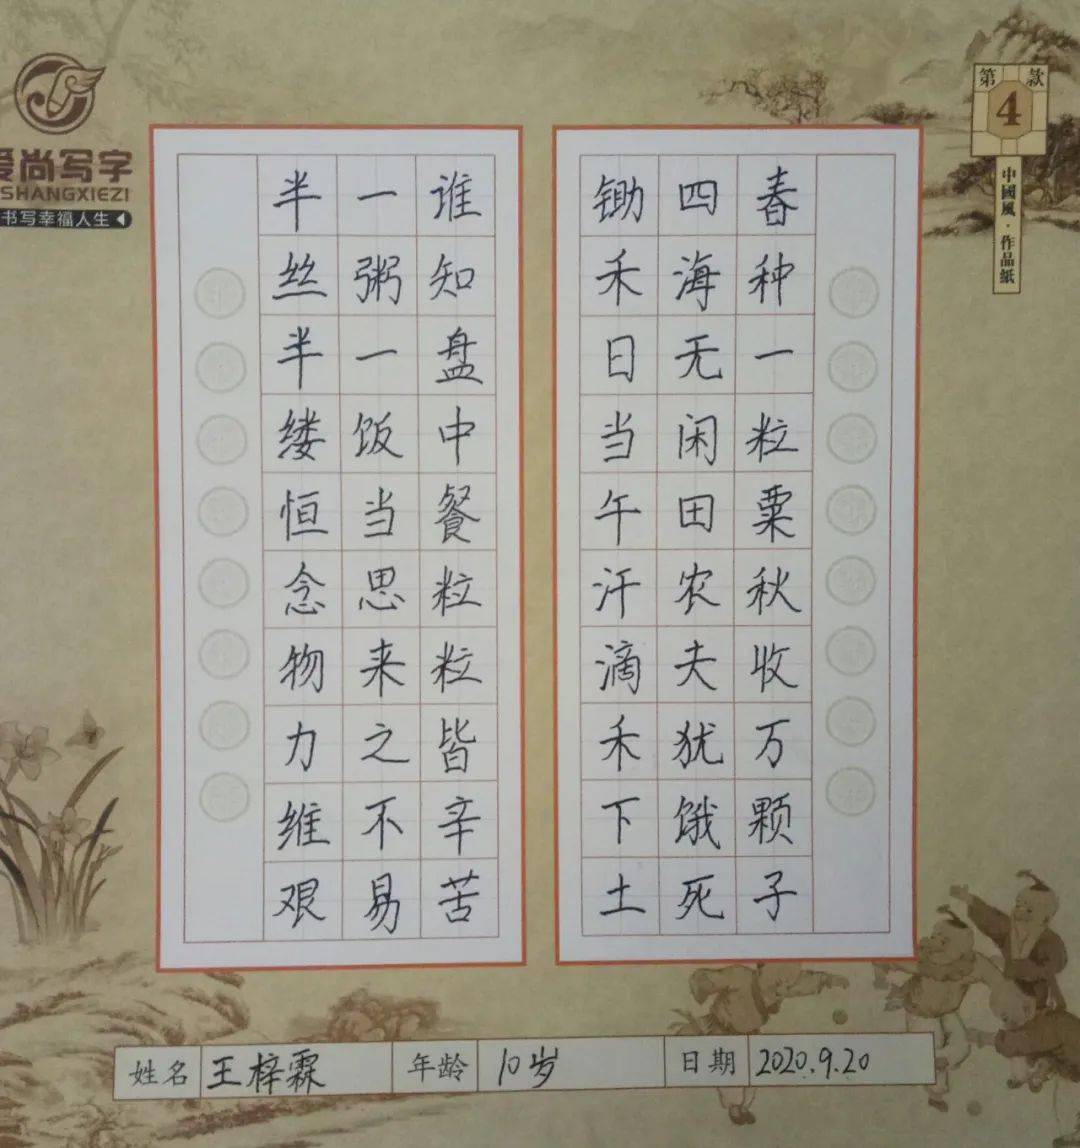 爱尚写字
SHANGXIEZI
书写幸福人生
第4款
中國風·作品紙
春种一粒粟秋收万颗子
四海无闲田农夫犹饿死
锄禾日当午汗滴禾下土
谁知盘中餐粒粒皆辛苦
一粥一饭当思来之不易
半丝半缕恒念物力维艰
姓名 王梓霖 年龄 10岁 日期 2020.9.20